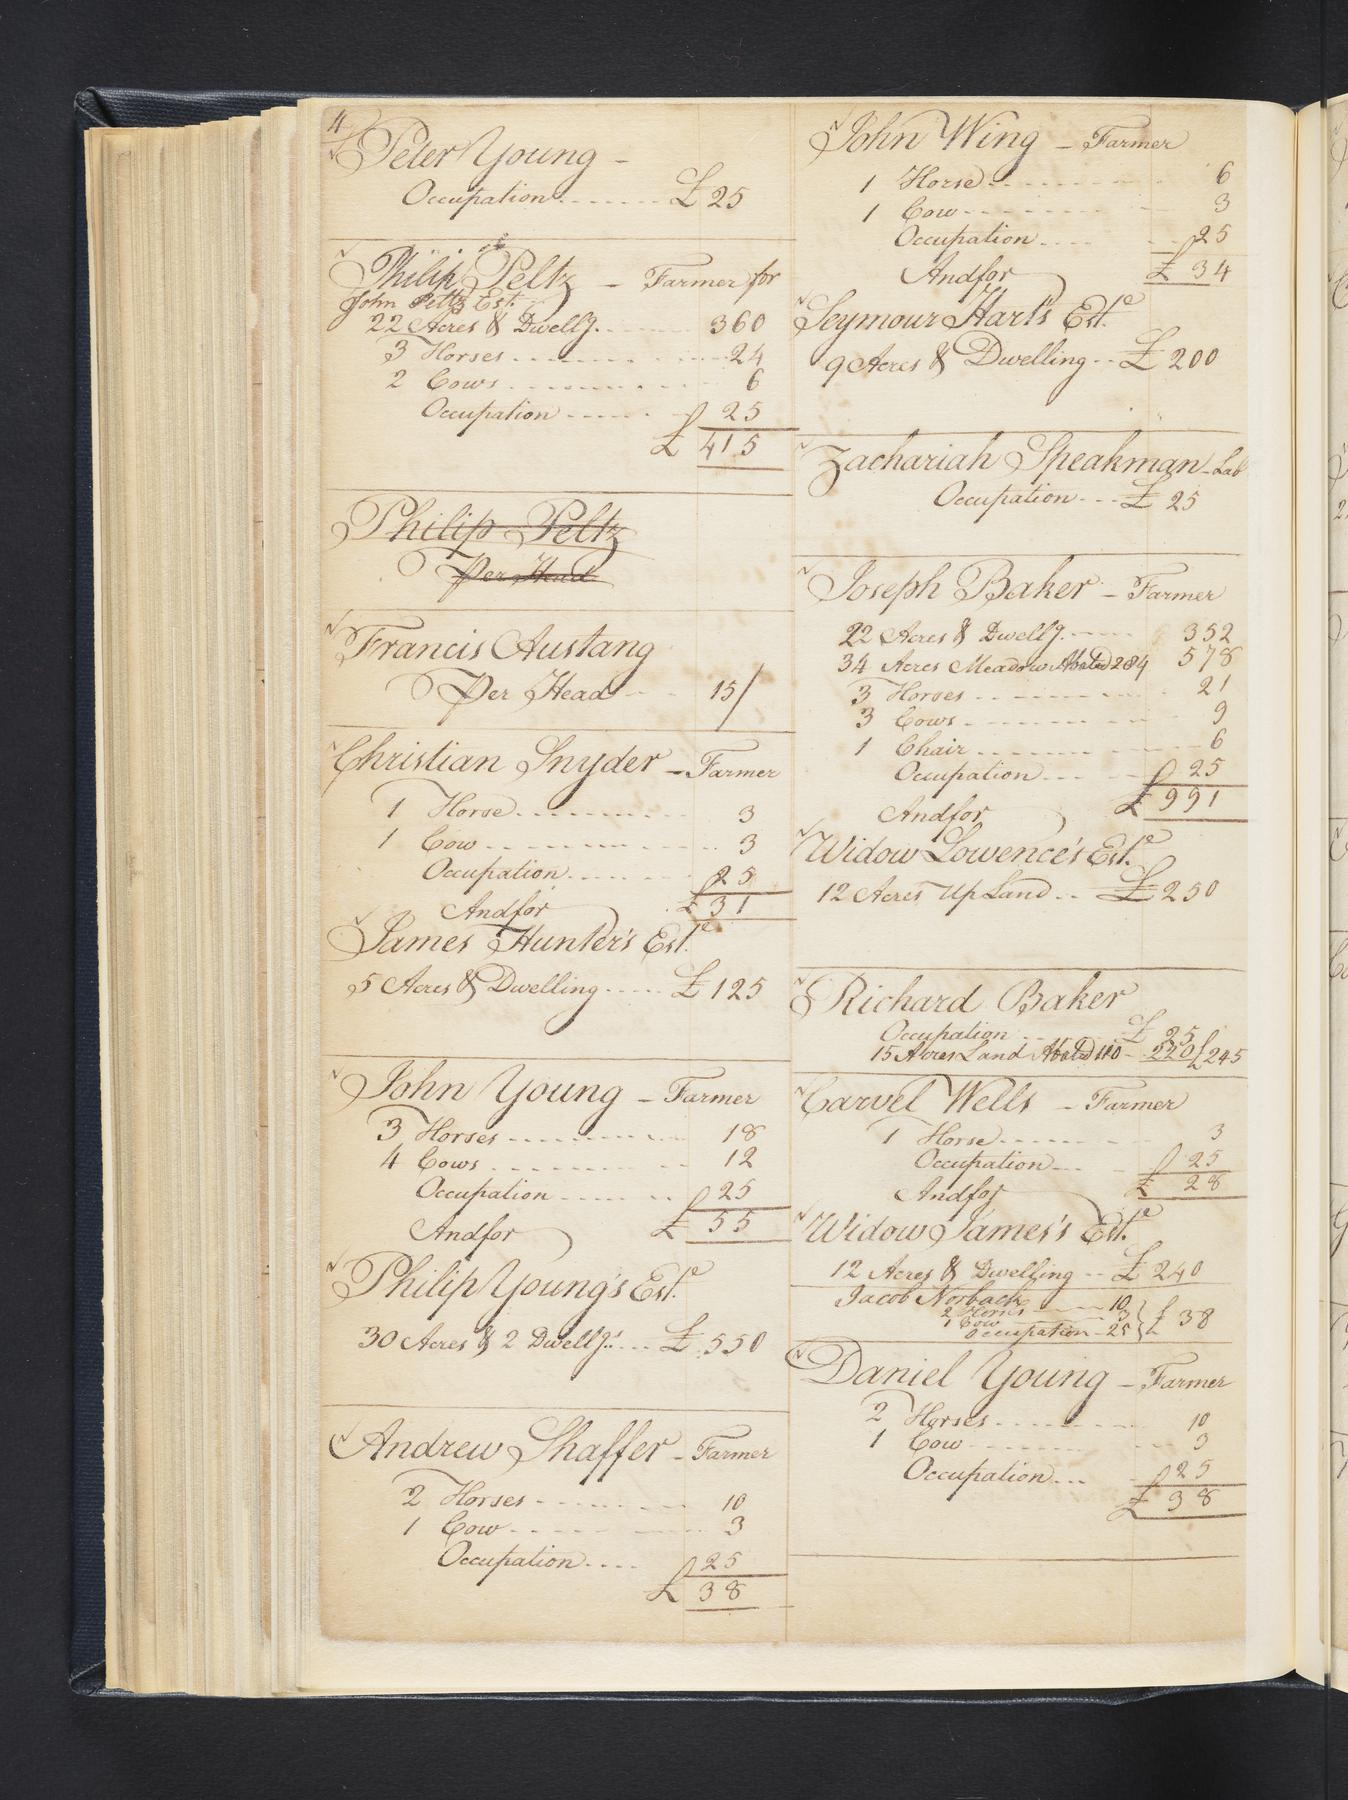 4
Peter Young -
Occupation £ 25
Philip Peltz - Farmer for
John Peltz Est.
22 Acres & Dwellg. 360
3 Horses 24
2 Cows 6
Occupation 25
£ 415
Philip Peltz
Per Head
Francis Austang
Per Head 15/
Christian Snyder - Farmer
1 Horse 3
1 Cow 3
Occupation 25
And for £ 31
James Hunter's Este
5 Acres & Dwelling £ 125
John Young - Farmer
3 Horses 18
4 Cows 12
Occupation 25
And for £ 55
Philip Young's Este
30 Acres & 2 Dwellgs. £ 550
Andrew Shaffer - Farmer
2 Horses 10
1 Cow 3
Occupation 25
£ 38
John Wing - Farmer
1 Horse 6
1 Cow 3
Occupation 25
And for £ 34
Seymour Hart's Este
9 Acres & Dwelling £ 200
Zachariah Speakman - Lab
Occupation £ 25
Joseph Baker - Farmer
22 Acres & Dwellg. 352
34 Acres Meadow Abated 284 578
3 Horses 21
3 Cows 9
1 Chair 6
Occupation 25
And for £ 991
Widow Lowence's Este
12 Acres Up Land £ 250
Richard Baker
Occupation £ 25
15 Acres Land Abated 110 - 220 £ 245
Carvel Wells - Farmer
1 Horse 3
Occupation 25
And for £ 28
Widow James's Este
12 Acres & Dwelling £ 240
Jacob Norback
2 Horses 10
1 Cow 3 £ 38
Occupation - 25
Daniel Young - Farmer
2 Horses 10
1 Cow 3
Occupation 25
£ 38